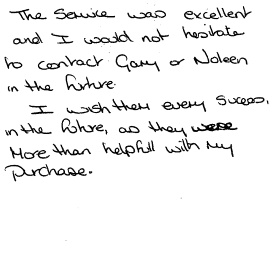 The Service was excellent
and I would not hesitate
to contract Gary or Noleen
in the future.
I wish them every sucess,
in the future, as they were
More than helpfull with my
purchase.